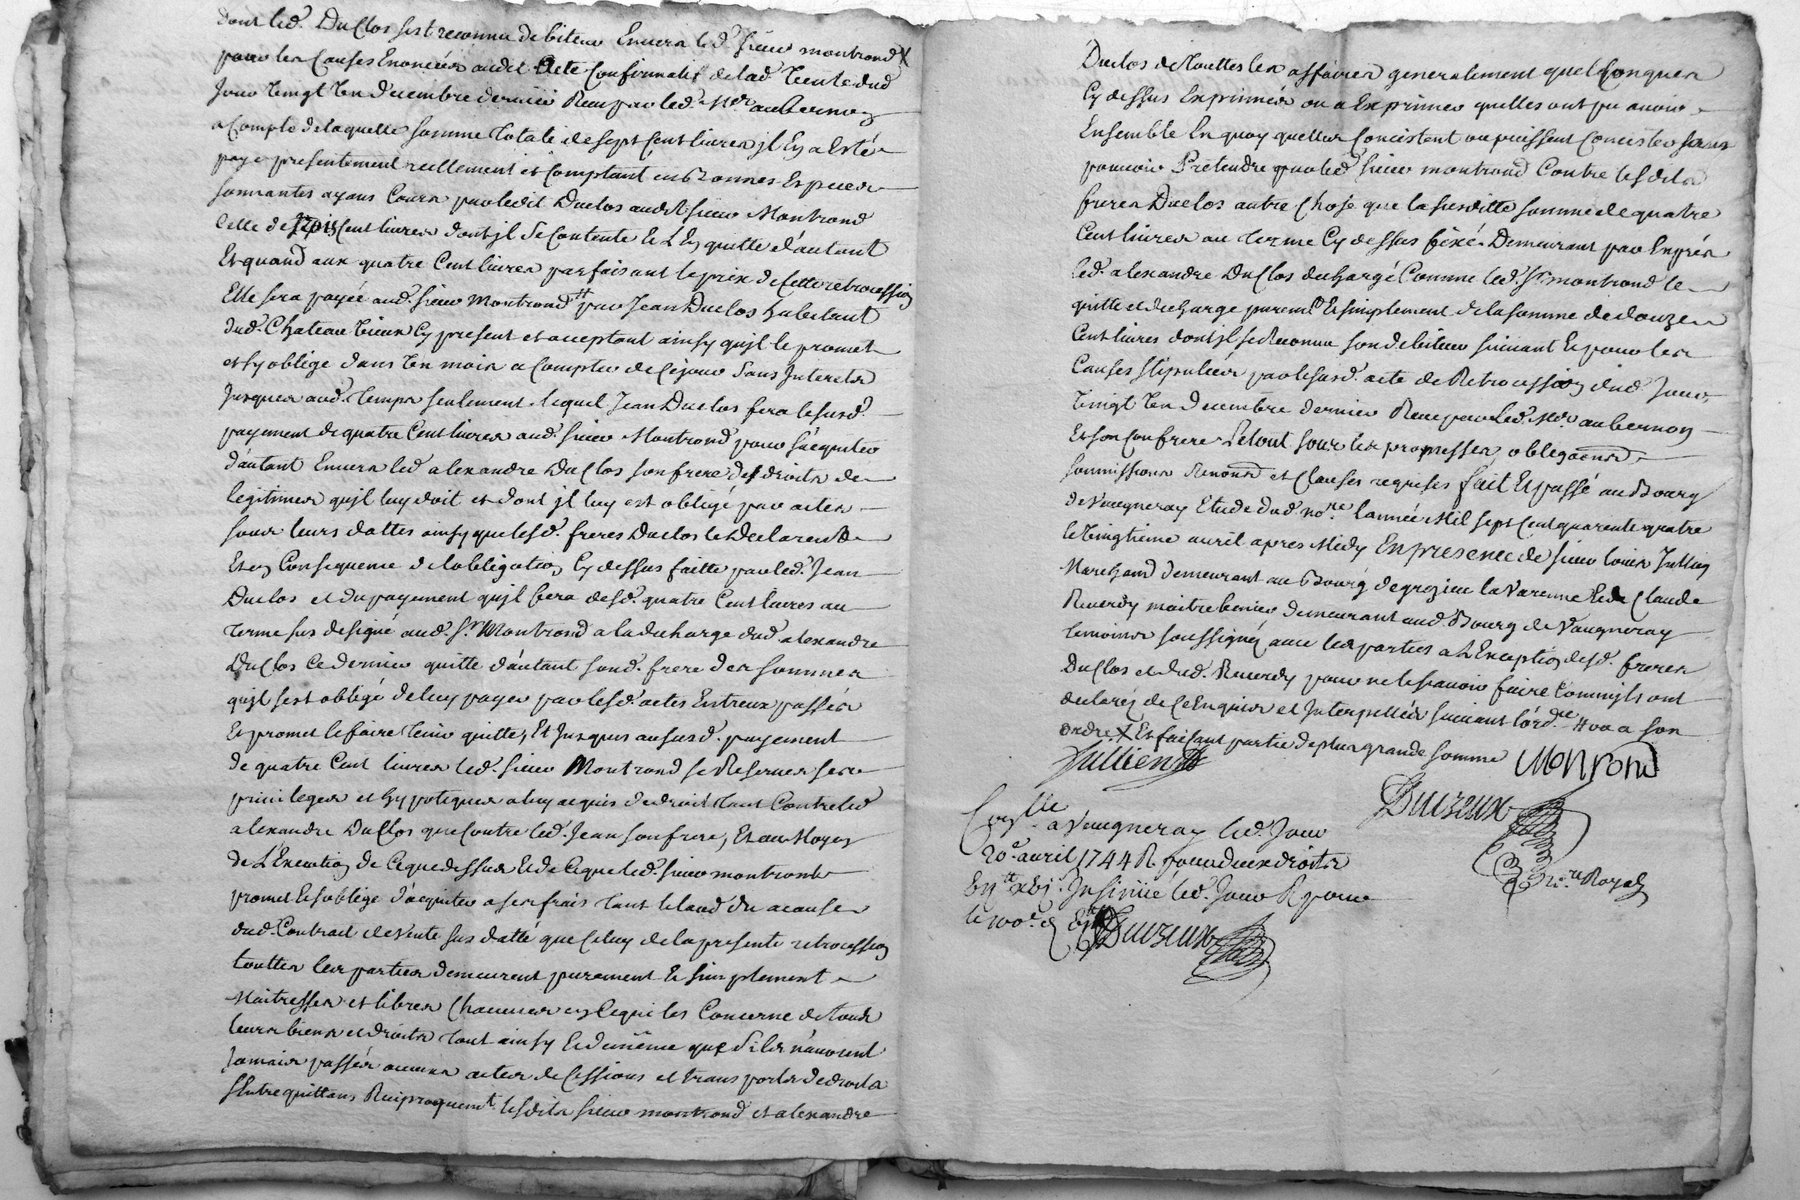 dont led. Duclos sest reconnu debiteur Envers led. sieur montrond X
pour les Causes Enoncées audit Acte Confirmatif de lad. Vente dud.
Jour Vingt Un decembre dernier Reçu par led. Me. aubernon
a Compte de laquelle somme totale de sept Cent livres jl En a Esté
payé presentement reellement et Comptant en bonnes Especes
sonnantes ayans Cours par ledit Duclos audit sieur Montrond
Celle de trois Cent livres dont jl se Contente & L'En quitte d'autant
Et quand aux quatre Cent livres parfaisant le prix de Cette retrocession
Elle sera payée aud. sieur Montrond # par Jean Duclos habitant
dud. Chateau Vieux Cy present et acceptant ainsy qujl le promet
et sy oblige dans Un mois a Compter de Cejour sans Interets
Jusques aud. temps seulement. lequel Jean Duclos fera le susd.
payement de quatre Cent livres aud. sieur Montrond pour s'acquiter
d'autant Envers led. alexandre Duclos son frere des droits de
legitimes qujl luy doit et dont jl luy est obligé par actes
sous leurs dattes ainsy que lesd. freres Duclos le Declarent &
Et en Consequence de lobligation Cy dessus faitte par led. Jean
Duclos et du payement qujl fera desd. quatre Cent livres au
terme sus designé aud. sr. Montrond a la decharge dud. alexandre
Duclos Ce dernier quitte d'autant sond. frere des sommes
qujl sest obligé de luy payer par lesd. actes Entreux passés
Et promet le faire tenir quitte, Et Jusques au susd. payement
de quatre Cent livres led. sieur Montrond se Reserve ses
privileges et hypoteques a luy acquis de droit tant Contre led.
alexandre Duclos que Contre led. Jean son frere, Et au Moyen
de L'Execution de Ceque dessus & de Ceque led. sieur montrond
promet & soblige d'acquiter a ses frais tant le laud du a cause
dud. Contrait de Vente sus datté que Celuy de la presente retrocession
touttes les parties demeurent purement & simplement
Maitresses et libres Chacune en Cequi les Concerne de tous
leurs biens et droits tout ainsy & de même que s'ils n'avoient
Jamais passés aucuns actes de Cessions et transports de droits
s'Entrequittans Reciproquemt. lesdits sieur montrond et alexandre
Duclos de touttes les affaires generalement quelConques
Cy dessus Exprimées ou a Exprimer qu'elles ont pu avoir
Ensemble En quoy quelles Concistent ou puissent Concister sans
pouvoir Pretendre par led. sieur montrond Contre lesdits
freres Duclos autre Chose que la susditte somme de quatre
Cent livres au terme Cy dessus fixé. Demeurant par Exprès
led. alexandre Duclos dechargé Comme led. sr. montrond le
quitte et decharge puremt. & simplement de la somme de douze
Cent livres dont jl se Reconnu son debiteur suivant & pour les
Causes stipulées par le susd. acte de Retrocession dud. Jour
Vingt Un decembre dernier Reçu par led. Me. aubernon
Et son Confrere Le tout sous les promesses obligaons.
soumissions Renons et Clauses requises fait & passé au Bourg
de Vaugneray Etude dud. nore. l'année Mil sept Cent quarente quatre
le Vingtieme avril apres Midy En presence de sieur louis Jullien
Marchand demeurant au Bourg de grezieu la Varenne & de Claude
Reverdy maitre demeurant aud. Bourg de Vaugneray
temoins soussignez avec les parties a L'Exception desd. freres
Duclos et dud. Reverdy pour ne le scavoir faire Comm'jls ont
declaréz de Ce Enquis et Interpellés suivant l'ordce. # ou a son
ordre X Et faisant partie de plus grande somme
Jullien
Monrond
Duizeux
nre. Royal
Conlle. a Vaugneray led. Jour
20e. avril 1744 R. pour deux droits
Insinüé led. Jour R pour
le 100e.
Duizeux